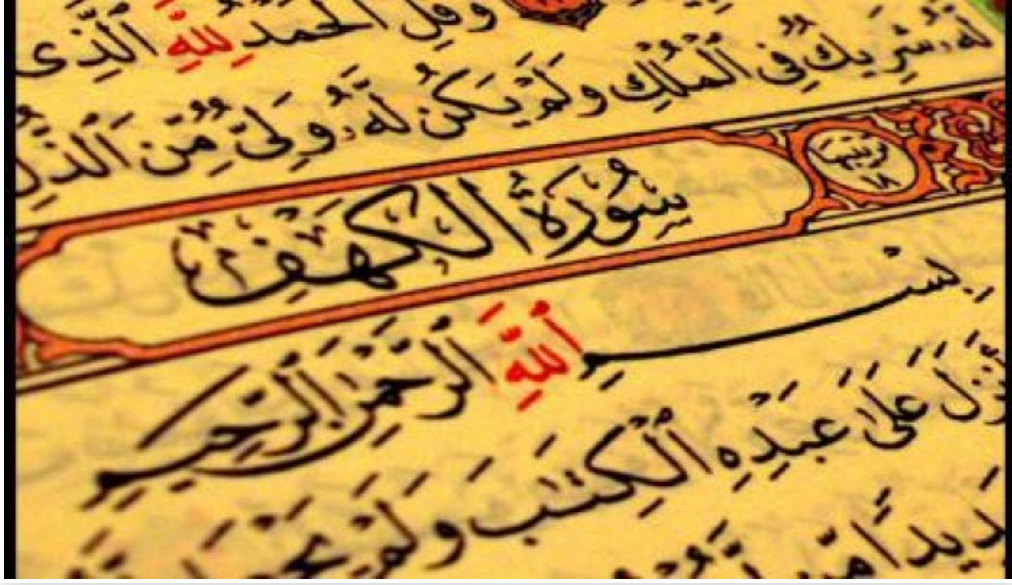 وَقُلِ الْحَمْدُ لِلَّهِ الَّذِى
لَّهُۥ شَرِيكٌ فِى الْمُلْكِ وَلَمْ يَكُن لَّهُۥ وَلِىٌّ مِّنَ الذُّلِّ
ترتيبها ١٨
سُورَةُ الكَهْفِ
بِسْمِ ٱللَّهِ ٱلرَّحْمَٰنِ ٱلرَّحِيمِ
عَلَىٰ عَبْدِهِ ٱلْكِتَٰبَ وَلَمْ